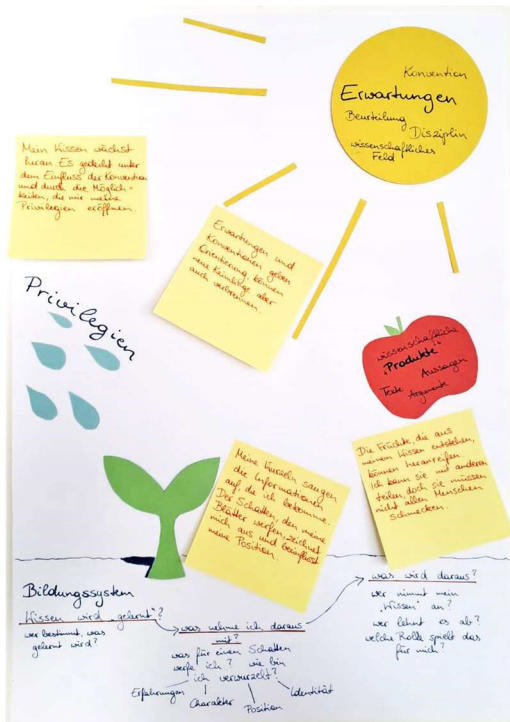 Konvention
Erwartungen
Beurteilung
Disziplin
wissenschaftliches
Feld
Mein Wissen wächst
heran. Es gedeiht unter
dem Einfluss der Konvention
und durch die Möglich-
keiten, die mir meine
Privilegien eröffnen.
Erwartungen und
Konventionen geben
Orientierung, können
neue Keimlinge aber
auch verbrennen.
Privilegien
wissenschaftliche
"Produkte"
Aussagen
Texte
Argumente
Meine Wurzeln saugen
die Informationen
auf, die ich bekomme.
Der Schatten, den meine
Blätter werfen, zeichnet
mich aus und beeinflusst
meine Position.
Die Früchte, die aus
meinem Wissen entstehen,
können heranreifen.
Ich kann sie mit anderen
teilen, doch sie müssen
nicht allen Menschen
schmecken.
Bildungssystem
Wissen wird "gelernt"?
wer bestimmt, was
gelernt wird?
was nehme ich daraus
mit?
was für einen Schatten
werfe ich? wie bin
ich verwurzelt?
Erfahrungen
Charakter
Position
Identität
was wird daraus?
wer nimmt mein
"Wissen" an?
wer lehnt es ab?
welche Rolle spielt das
für mich?